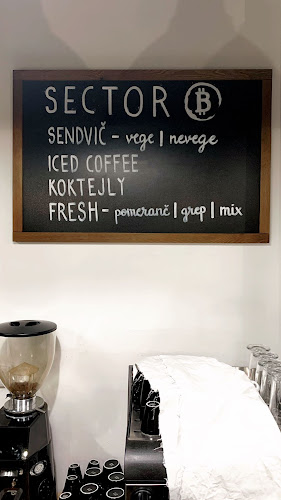 SECTOR ₿
SENDVIČ - vege | nevege
ICED COFFEE
KOKTEJLY
FRESH - pomeranč | grep | mix